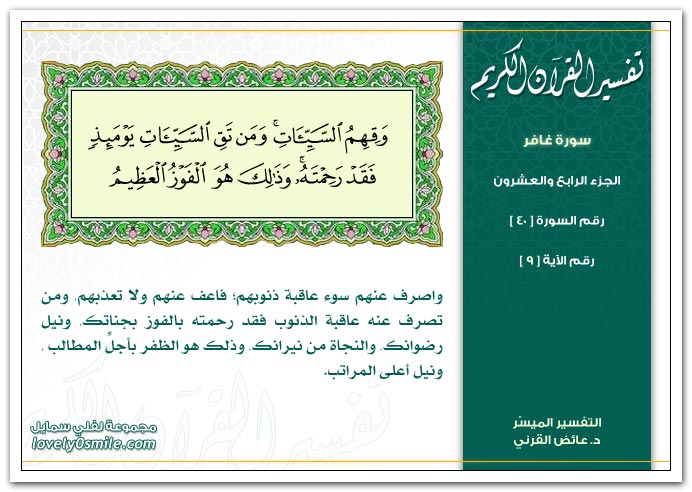 تفسير القرآن الكريم
سورة غافر
الجزء الرابع والعشرون
رقم السورة [ ٤٠ ]
رقم الآية [ ٩ ]
وَقِهِمُ ٱلسَّيِّـَٔاتِ ۚ وَمَن تَقِ ٱلسَّيِّـَٔاتِ يَوْمَئِذٍ
فَقَدْ رَحِمْتَهُۥ ۚ وَذَٰلِكَ هُوَ ٱلْفَوْزُ ٱلْعَظِيمُ
واصرف عنهم سوء عاقبة ذنوبهم؛ فاعف عنهم ولا تعذبهم، ومن
تصرف عنه عاقبة الذنوب فقد رحمته بالفوز بجناتك، ونيل
رضوانك، والنجاة من نيرانك، وذلك هو الظفر بأجلِّ المطالب ،
ونيل أعلى المراتب.
التفسير الميسّر
د. عائض القرني
مجموعة لفلي سمايل
lovely0smile.com
تفسير القرآن الكريم